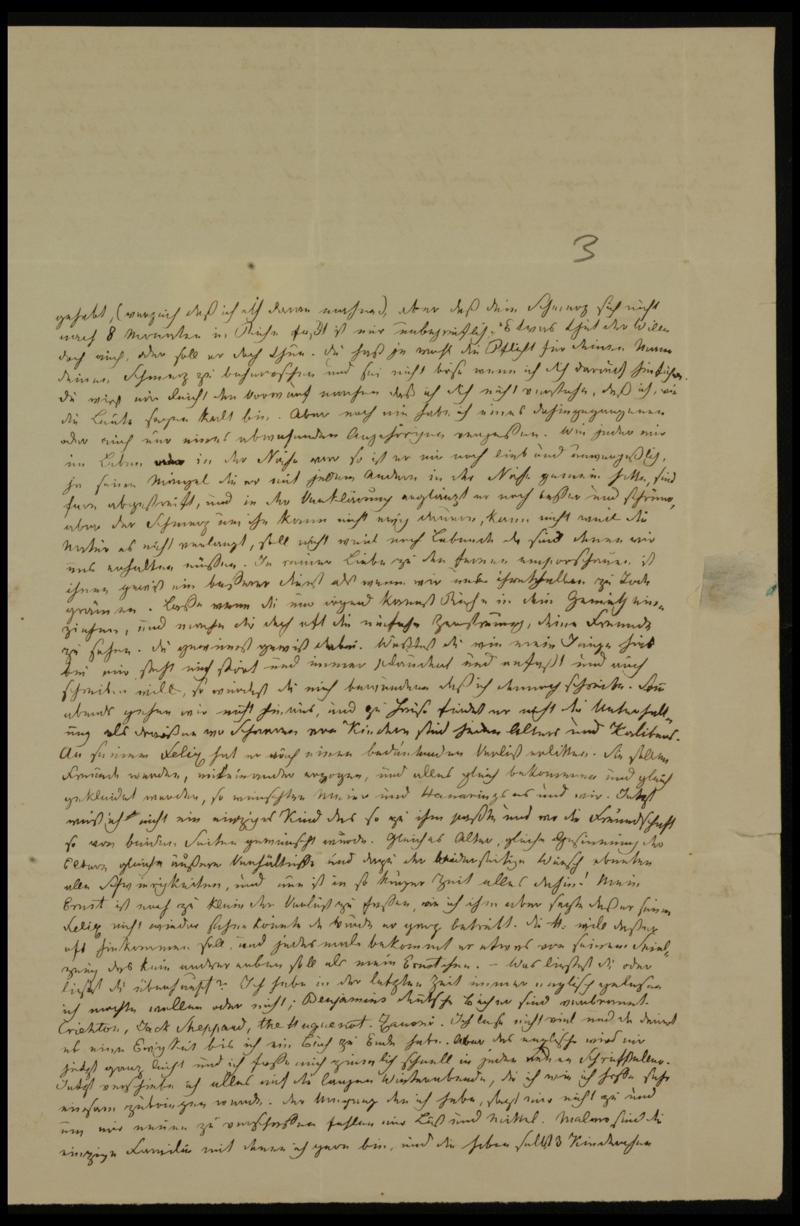 3
gehabt, (verzeih daß ich dich daran mahne), aber daß dein Schmerz sich nicht
nach 8 Monaten in Ruhe faßt ist mir unbegreiflich. Etwas thut der Wille
doch auch, oder soll er doch thun. Du hast ja wohl die Pflicht für deinen Mann
deinen Schmerz zu beherrschen und sei nicht böse wenn ich dich darauf hinführe.
Du wirst mir leicht den Vorwurf machen daß ich dich nicht verstehe, daß ich, wie
die Leute sagen kalt bin. Aber noch nie habe ich eines dahingegangenen
oder auch nur eines abwesenden Angehörigen vergessen. Wie jeder mir
im Leben in der Nähe war so ist er mir noch lieb und unvergeßlich,
ja seine Mängel die er mit jedem Andern in der Nähe gemein hatte, sind
fern abgestreift, und in der Verklärung erglänzt er noch besser und schöner,
aber der Schmerz um ihn kann nicht ewig dauern, kann nicht weil die
Natur es nicht verlangt, soll nicht weil noch Lebende da sind denen wir
uns erhalten müssen. In reiner Liebe zu den fernen emporschauen ist
ihnen gewiß ein besserer Dienst als wenn wir uns ihrethalben zu Tode
grämen. Lasse wenn du nur irgend kannst Ruhe in dein Gemüth ein-
ziehen, und mache dir doch oft die einfache Zerstreuung, deine Freunde
zu sehen. Du gewinnst gewiß dabei. Wüßtest du wie mein Junge hier
bei mir steht mich stört und immer plaudert und anfaßt und auch
schreiben will, so würdest du mich bewundern daß ich dennoch schreibe.
abends gehen wir nicht hinaus, und zu Hause findet er nicht die Unterhalt-
ung als draußen wo Schaaren von Kindern sind jeden Alters und Kalibers.
An seinem Felix hat er auch einen bedeutenden Verlust erlitten. Sie sollten
Freunde werden, miteinander erzogen, und alles gleich bekommen und gleich
gekleidet werden, so wünschten Meier und es und wir. Jetzt
weiß ich nicht ein einziges Kind das so zu ihm paßte und wo die Freundschaft
so von beiden Seiten gewünscht würde. Gleiches Alter, gleiche Gesinnung der
Eltern gleiche äußere Verhältnisse und dazu der beiderseitige Wunsch ebneten
alle Schwierigkeiten, und nun ist in so kurzer Zeit alles dahin! Mein
Ernst ist noch zu klein den Verlust zu fassen, wie ich ihm aber sagte daß er seinen
Felix nicht wieder sehen könnte da wurde er ganz betrübt. Die H. will daß er
oft hinkommen soll, und jedes mal bekommt er etwas von seinem Spiel-
zeug das kein anderer haben soll als mein Ernstchen. – Was liesest du oder
liesest du überhaupt? Ich habe in der letzten Zeit immer englisch gelesen
ich mochte wollen oder nicht; Benjamins deutsche Bücher sind verbrannt.
Crichton, Jack Sheppard, the Huguenot. Zanoni. Ich lese nicht viel und da dauert
es eine Ewigkeit bis ich ein Buch zu Ende habe. Aber das englische wird mir
jetzt ganz leicht und ich fasse mich ziemlich schnell in jeden Schriftsteller.
Jetzt verschiebe ich alles auf die langen Winterabende, die ich wie ich hoffe sehr
einsam zubringen werde. Der Umgang den ich habe, sagt mir nicht zu und
um mir neuen zu verschaffen fehlen mir Lust und Mittel. Malers sind die
einzige Familie mit denen ich gern bin, und die haben selbst 3 Kinderchen